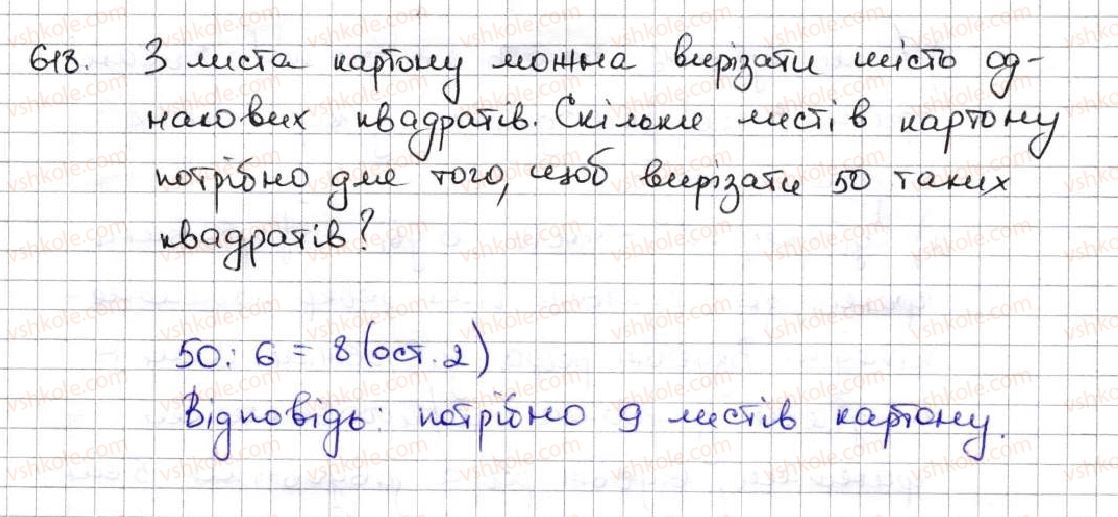 618. З листа картону можна вирізати шість од-
накових квадратів. Скільки листів картону
потрібно для того, щоб вирізати 50 таких
квадратів?
50 : 6 = 8 (ост. 2)
Відповідь: потрібно 9 листів картону.
vshkole.com